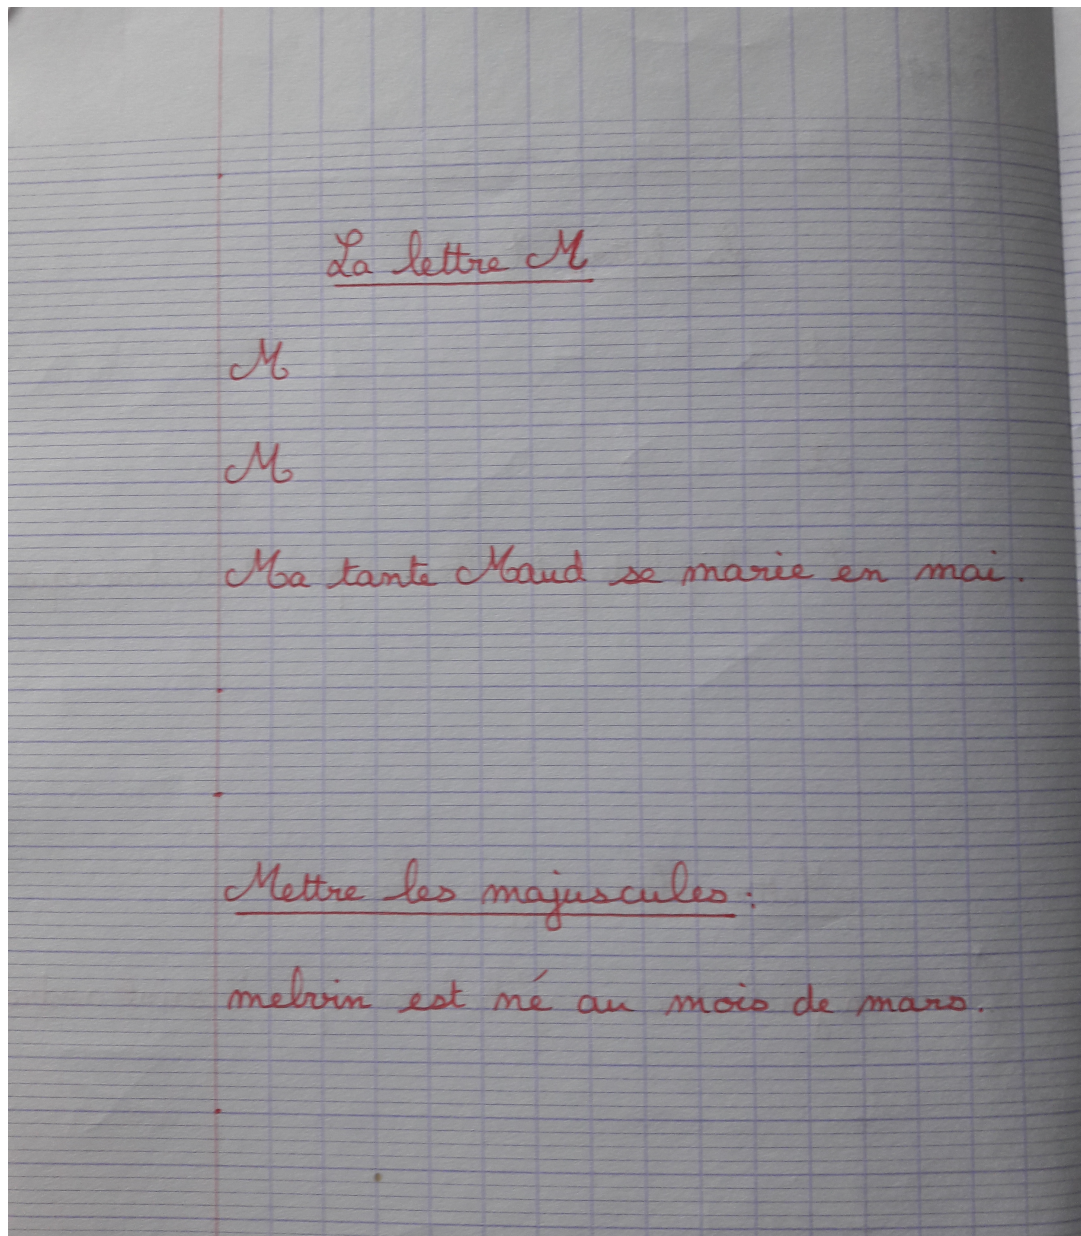 La lettre M
M
M
Ma tante Maud se marie en mai.
Mettre les majuscules :
melvin est né au mois de mars.